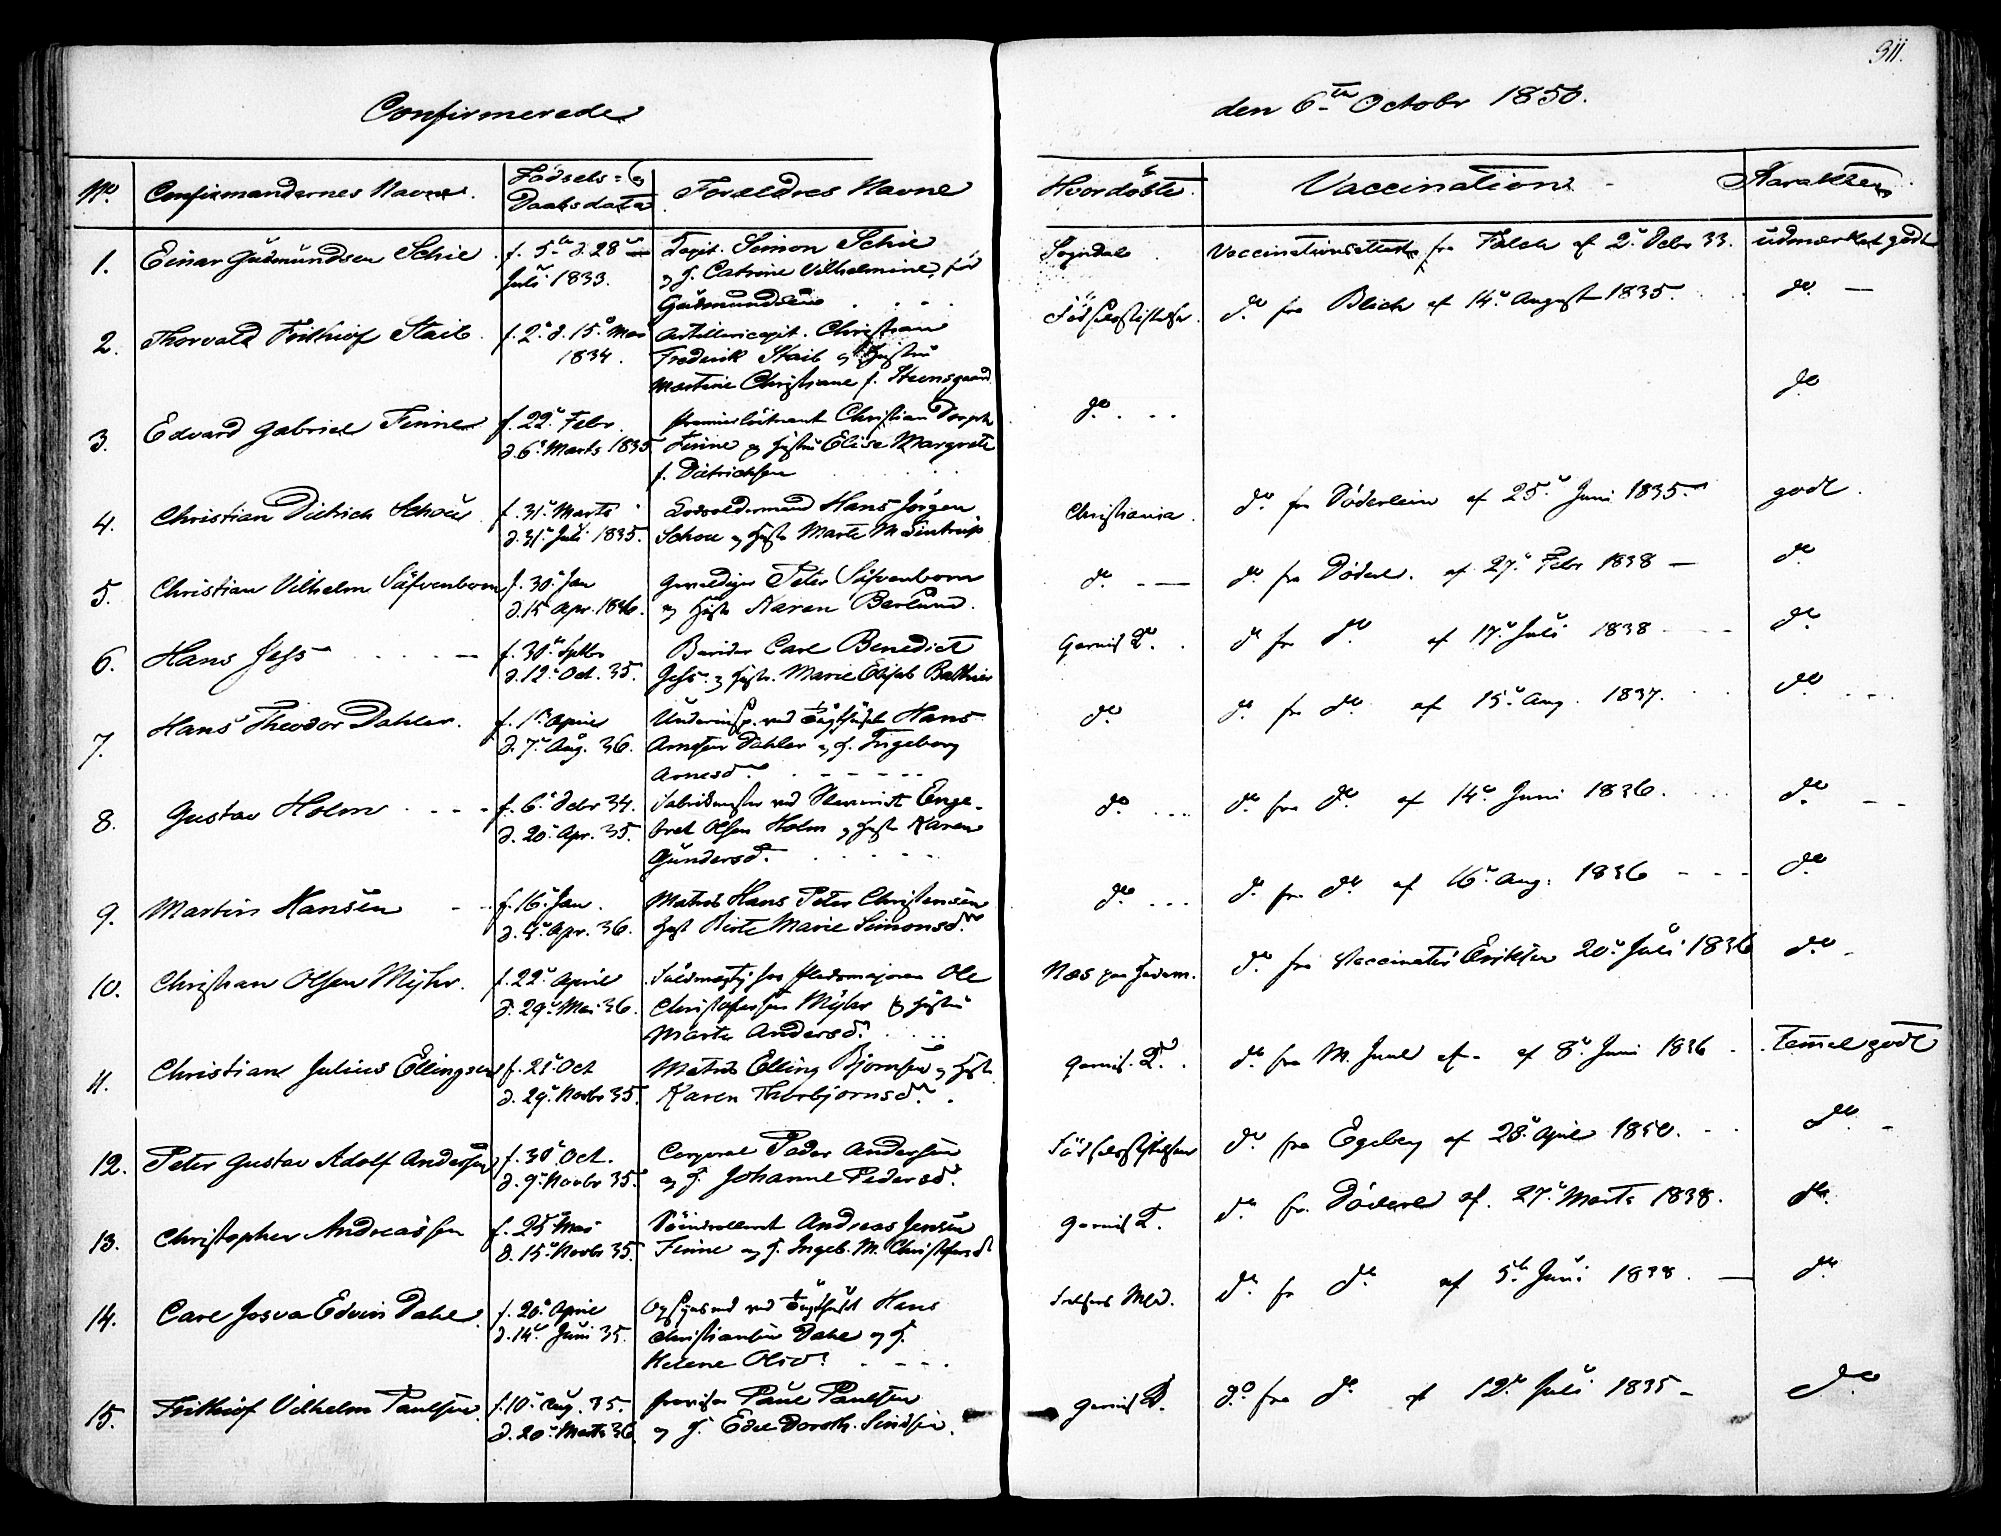 311.
Confirmerede
den 6te Octobr 1850.
No. Confirmandernes Navne. Födsels- og Daabsdata Forældres Navne Hvor döbte. Vaccination Karakter
1. Einar Gudmundsen Schie f. 5te d. 28de Juli 1833. Capit. Simon Schie
og H. Catrine Vilhelmine född
Gudmundsen
Sogndal Vaccinationsattest fra Falch af 2n Debr 33. udmærket godt
2. Thorvald Frithiof Staib f. 2n d. 15n Mai 1834. Artillericapit. Christian
Frederik Staib og Hustru
Martine Christiane f. Steensgaard
Födselsstiftelsen do fra Blich af 14n August 1835. do
3. Edvard Gabriel Finne f. 22n Febr. d. 6n Marts 1835 Premierlöitnant Christian
Finne og Hustru Elise Margrete
f. Ditrichsen
do do
4. Christian Ditrich Schou f. 31n Marts d. 31n Juli 1835. Hans Jörgen
Schou og Hust Marte M.
Christiania do fra Döderlein af 25n Juni 1835. godt
5. Christian Vilhelm Säfvenbom f. 30n Jan d. 15 Apr. 1836. Gevaldiger Peter Säfvenbom
og Hust Karen Berlund.
do do fra Döderl. af 27n Febr 1838 do
6. Hans Jess f. 30n Septbr d. 12n Oct. 35. Berider Carl Benedict
Jess og Hustr. Marie Elisab
Garnis K. do fr do af 17n Juli 1838 do
7. Hans Theodor Dahler. f. 1n April d. 7n Aug. 36. Underinsp. ved Tugthuset Hans
Arnesen Dahler og H. Ingeborg
Arnesd.
do do fr do af 15n Aug. 1837. do
8. Gustav Holm f. 6n Debr 34. d. 20n Apr. 35. Fabrikmester ved Enge-
bret Olsen Holm og Hust Karen
Gundersd.
do do fra do af 14n Juni 1836. do
9. Martin Hansen f. 16n Jan. d. Apr. 36. Matros Hans Peter Christensen
Hust Birte Marie Simonsd.
do do fra do af 16n Aug. 1836 do
10. Christian Olsen Myhr. f. 22n April d. 29n Mai 36. Ole
Christophersen Myhr og Hustru
Marte Andersd.
Næs paa Hedem. do fra Vaccinatör Eriksen 20n Juli 1836 do
11. Christian Julius Ellingsen f. 21n Oct d. 29n Novbr 35. Matros Elling Bjørnsen og Hust
Karen Thorbjornsd.
Garnis. K. do fra M. Juul af 8n Juni 1836 Temmel. godt
12. Peter Gustav Adolf Andersen f. 30n Oct. d. 9n Novbr 35. Corporal Peder Andersen
og H. Johanne Pedersd.
Födselsstiftelsen do fra Egeberg af 28n April 1850. do
13. Christopher Andreassen f. 25n Mai d. 15n Novbr 35. Andreas Jensen
Finne og H. Ingeb. M. Christophersd
Garnis K. do fr. Döderl af 27n Marts 1838. do
14. Carl Josva Edvin Dahl f. 20n April d. 14n Juni 35. Opsynsmd ved Tugthuset Hans
Christiansen Dahl og H.
Helene Olsd.
do fr do af 5te Juni 1838. do
15. Frithiof Vilhelm Paulsen f. 10n Aug. 35. d. 20n Marts 36. Provisor Paul Paulsen
og H. Edel Doroth.
Garnis K. do fra do af 12n Juli 1835 do